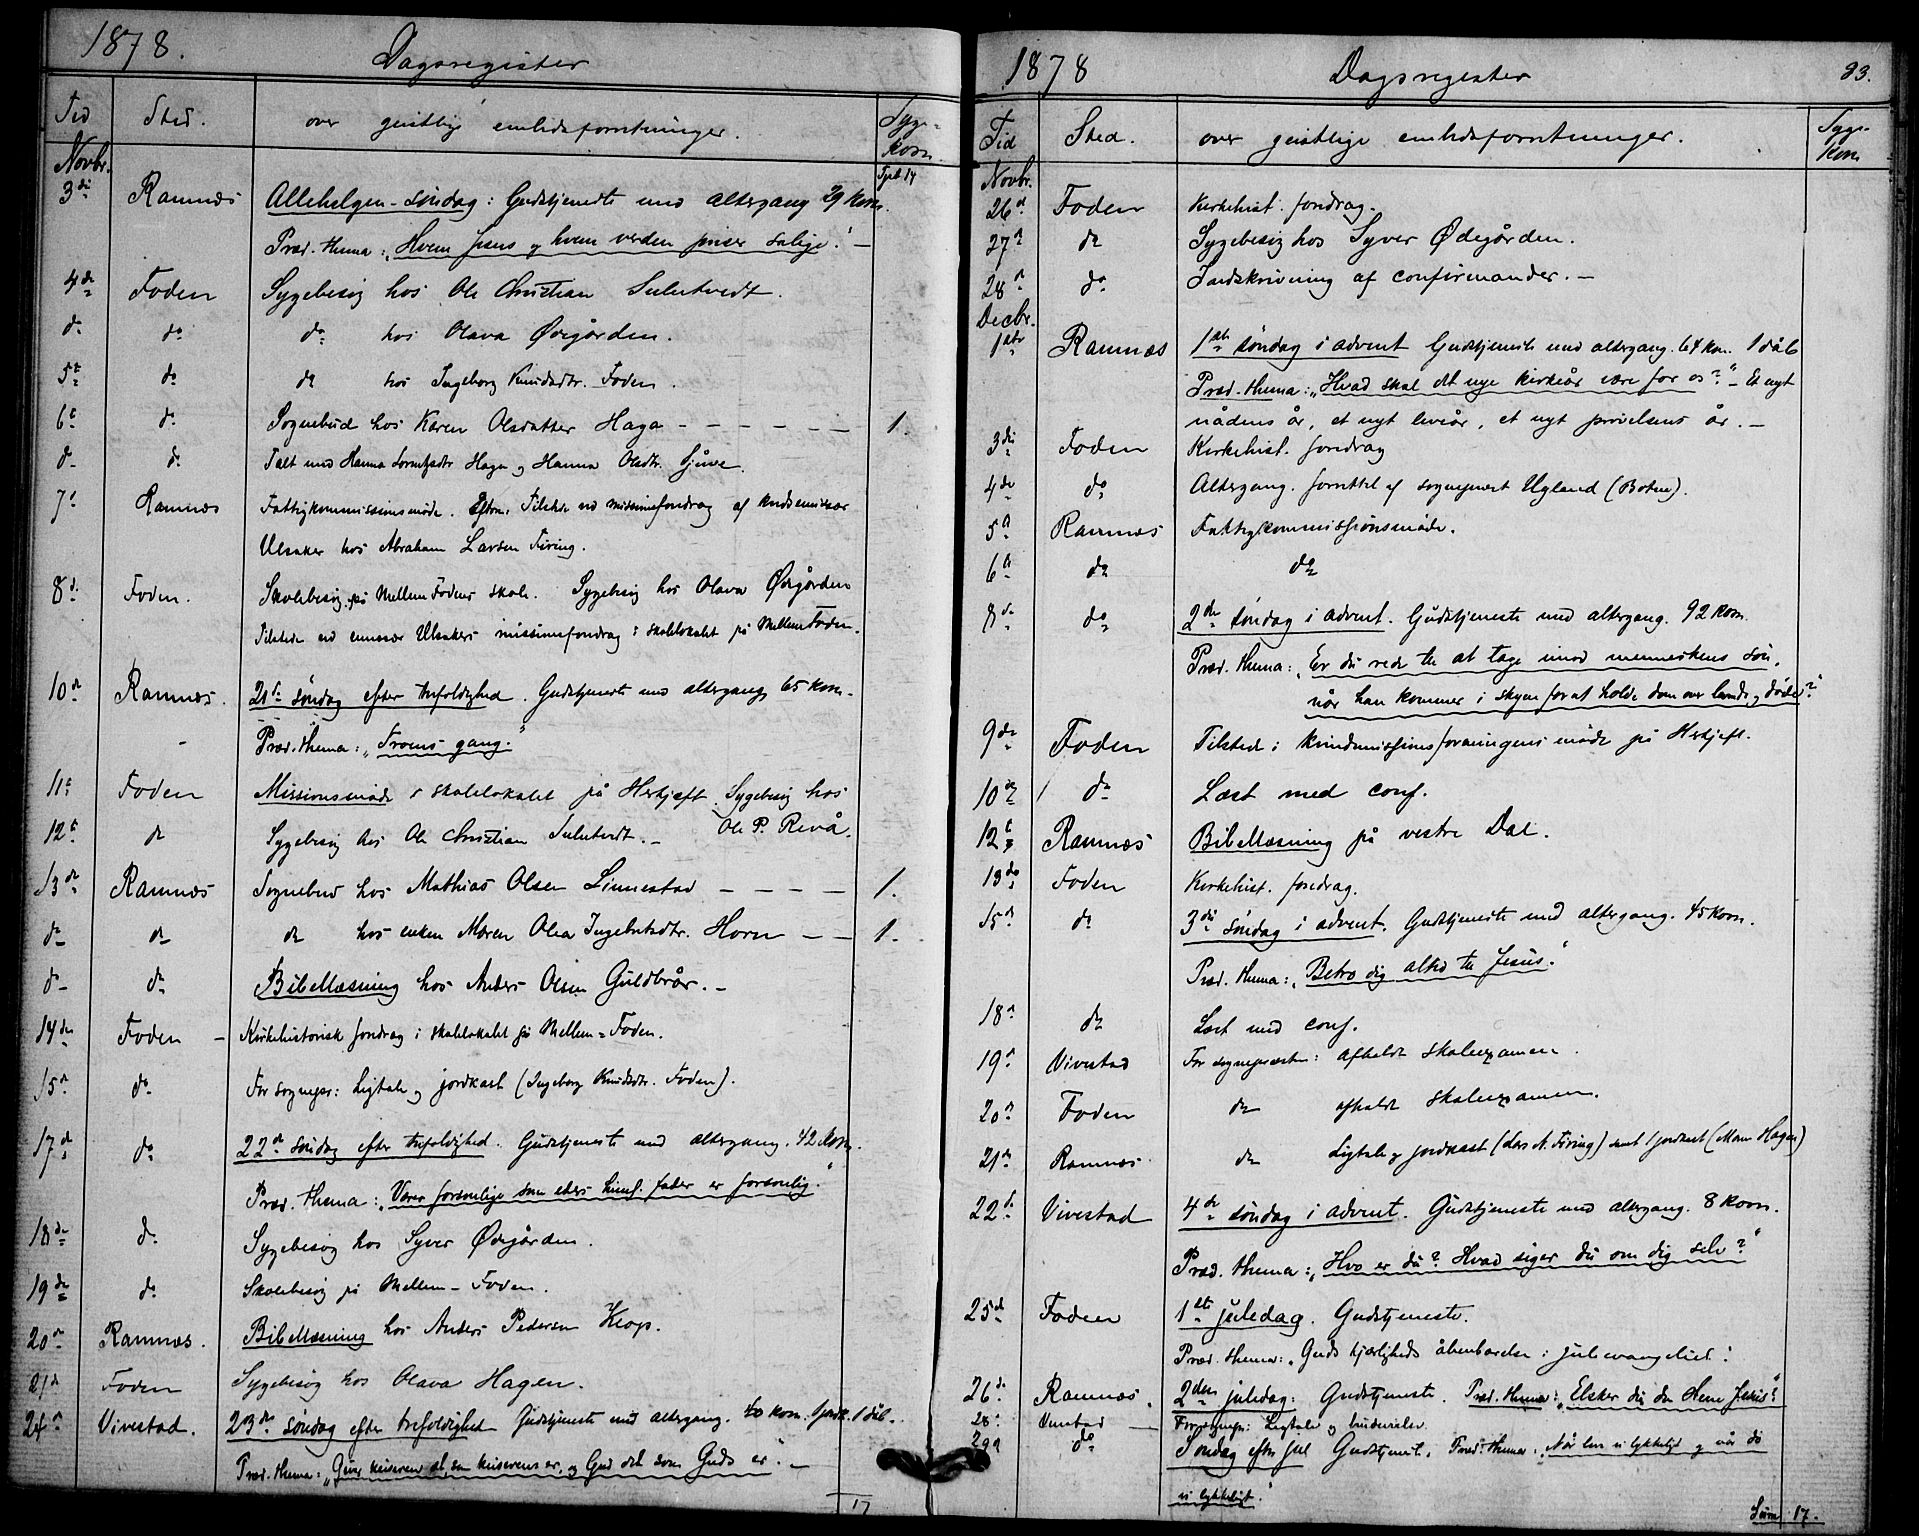 1878.
Dagsregister
Tid Sted. over geistlige embedsforretninger. Syge-
Kom.
Novbr. Tpt 14
3die Ramnæs Allehelgen-søndag: Gudstjeneste med altergang 29 kom.
Præd. thema: „Hvem Jesus og hvem verden priser salige.“ —
4de Foden Sygebesøg hos Ole Christian Sulutvedt.
do do do hos Olava Ødegården.
5te do do hos Ingeborg Knudsdtr. Foden.
6te do Sognebud hos Karen Olsdatter Haga — — — — — — 1.
do do Talt med Hanna Hagen og Hanna Olsdtr.
7de Ramnæs Fattigkommissionsmøde. Efterm. Tilstede ved missionsforedrag af
Ulsaker hos Abraham Larsen Firing.
8de Foden. Skolebesøg på Mellem Fodens skole. Sygebesøg hos Olava Ødegården
Tilstede ved emissær Ulsakers missionsforedrag i skolelokalet på Mellem Foden.
10de Ramnæs. 21de søndag efter trefoldighed. Gudstjeneste med altergang 65 kom.
Præd. thema: „Troens gang.“
11te Foden Missionsmøde i skolelokalet på Herkjeft. Sygebesøg hos
Ole P. Revå.
12te do Sygebesøg hos Ole Christian Sulutvedt. —
13de Ramnæs Sognebud hos Mathias Olsen Linnestad — — — — 1.
do do do hos enken Maren Olea Ingebretsdtr. Horn — — 1.
do do Bibellæsning hos Anders Olsen Guldbrår. —
14de Foden — Kirkehistorisk foredrag i skolelokalet på Mellem-Foden.
15de do For sognepr: Ligtale og jordkast (Ingeborg Knudsdtr. Foden).
17de do 22de søndag efter trefoldighed. Gudstjeneste med altergang. 42 kom.
Præd. thema: „Værer forsonlige som eders himl. fader er forsonlig.“
18de do Sygebesøg hos Syver Ødegården.
19de do Skolebesøg på Mellem-Foden.
20de Ramnæs. Bibellæsning hos Anders Pedersen Klop.
21de Foden Sygebesøg hos Olava Hagen.
24de Vivestad. 23de søndag efter trefoldighed Gudstjeneste med altergang. 40 kom. 1 jordk. 1 dåb.
Præd. thema: „Giver keiseren det, som keiserens er, og Gud det som Guds er“. —
17
1878 Dagsregister 93.
Tid Sted. over geistlige embedsforretninger. Syge-
Kom.
Novbr.
26de Foden Kirkehist. foredrag.
27de do Sygebesøg hos Syver Ødegården.
28de do Indskrivning af confirmander. —
Decbr.
1ste Ramnæs 1ste søndag i advent Gudstjeneste med altergang. 64 kom. 1 dåb
Præd. thema: „Hvad skal det nye kirkeår være for os?“ — Et nyt
nådens år, et nyt leveår, et nyt prøvelsens år. —
3die Foden Kirkehist. foredrag
4de do Altergang. forrettet af sognepræst Ugland (Botne).
5te Ramnæs Fattigkommissionsmøde.
6te do do
8de do 2den søndag i advent. Gudstjeneste med altergang. 92 kom.
Præd. thema: „Er du rede til at tage imod menneskens søn,
når han kommer i skyen for at holde dom over levende og døde?“
9de Foden Tilstede i kvindemissionsforeningens møde på Herkjeft.
10de do Læst med conf.
12te Ramnæs Bibellæsning på vestre Dal.
13de Foden Kirkehist. foredrag.
15de do 3die søndag i advent. Gudstjeneste med altergang. 45 kom.
Præd. thema: „Betro dig altid til Jesus.“
18de do Læst med conf.
19de Vivestad For sognepræsten: afholdt skoleexamen.
20de Foden do afholdt skoleexamen.
21de Ramnæs do Ligtale og jordkast (Lars N. Firing) samt 1 jordkast (Maren Hagen)
22de Vivestad 4de søndag i advent. Gudstjeneste med altergang. 8 kom.
Præd. thema: „Hvo er du? Hvad siger du om dig selv?“
25de Foden 1ste juledag. Gudstjeneste.
Præd. thema: „Guds kjærligheds åbenbarelse i juleevangeliet.“
26de Ramnæs. 2den juledag: Gudstjeneste. Præd. thema: „Elsker du den Herre Jesus?“
28de Vivestad For sognepr: Ligtale og brudevielse.
29de do Søndag efter jul Gudstjenest. Præd. thema: „Når leve vi lykkeligt og når dø
vi lykkeligt.“
Sum 17.